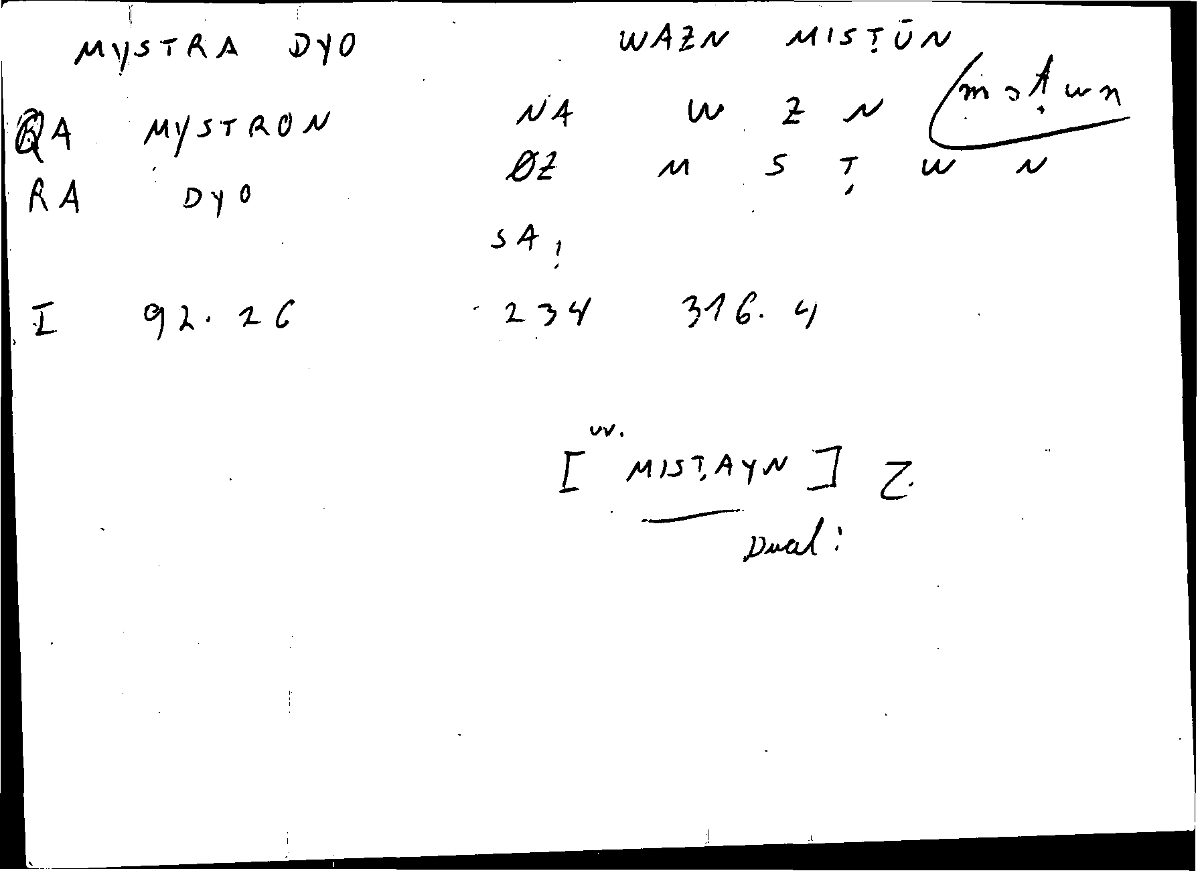 MYSTRA DYO WAZN MISṬŪN
QA MYSTRON NA W Z N (msṭwn
RA DYO ØZ M S Ṭ W N
SA!
I 92.26 234 316.4
vv.
[ MISṬAYN ]
Dual!